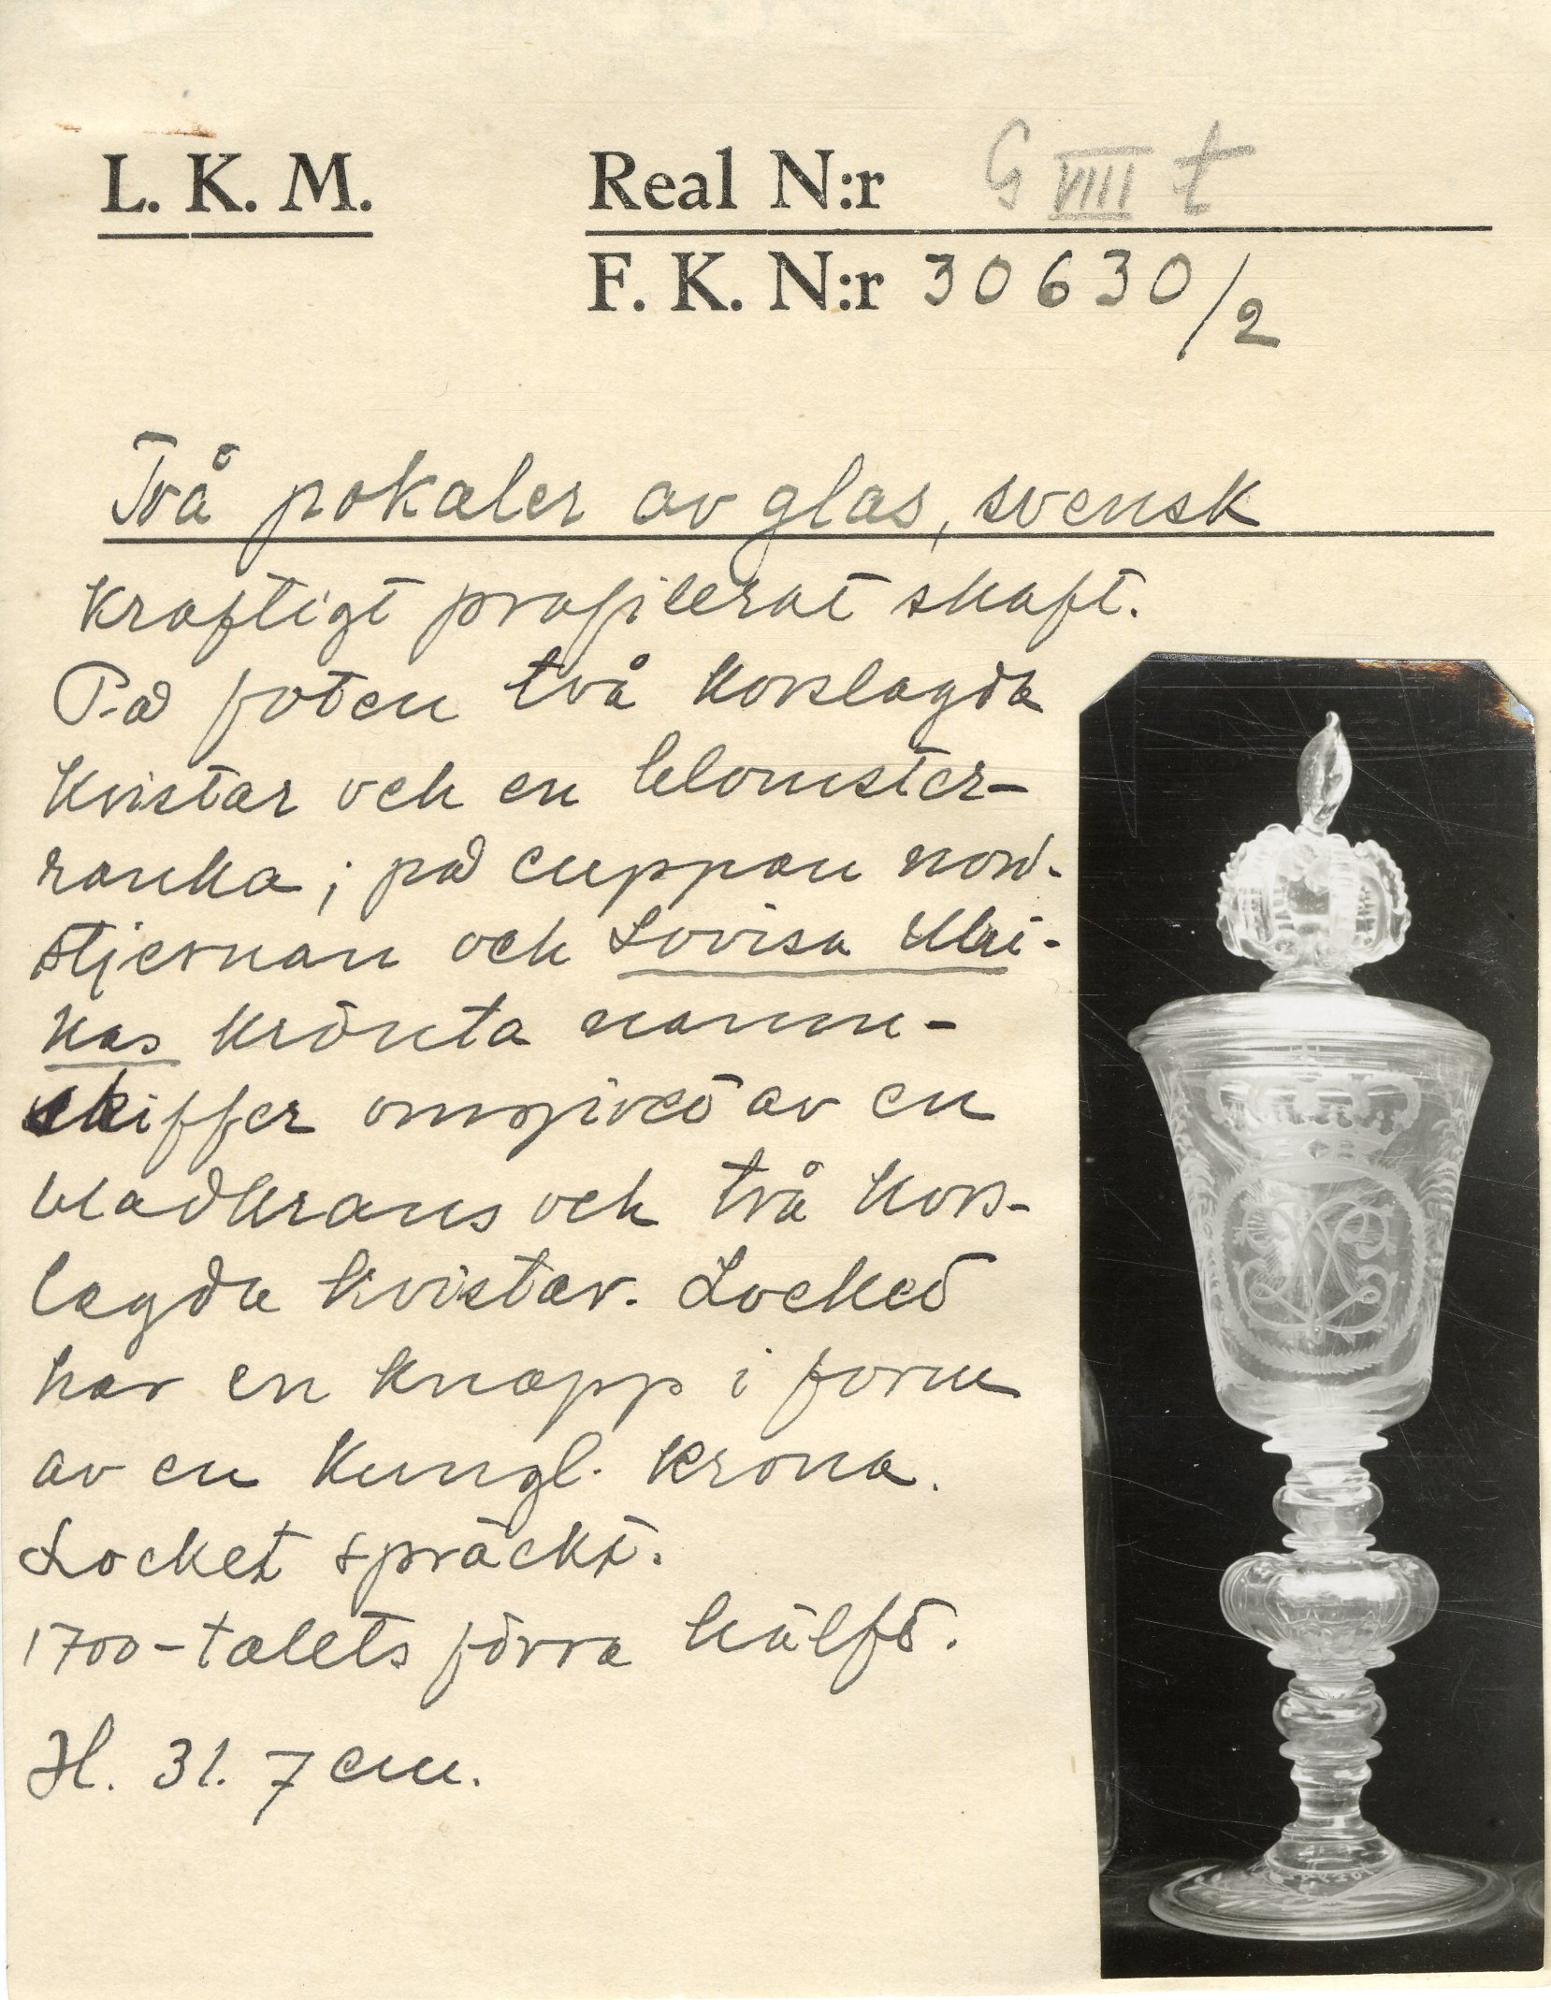 L. K. M.
Real N:r G VIII t
F. K. N:r 30630/2
Två pokaler av glas, svensk
Kraftigt profilerat skaft.
På foten två korslagda
kvistar och en blomster-
ranka; på cuppan nord-
stjernan och Lovisa Ulri-
kas krönta namn-
skiffer omgivet av en
bladkrans och två kors-
lagda kvistar. Locket
har en knapp i form
av en kungl. krona.
Locket spräckt.
1700-talets förra hälft.
H. 31.7 cm.